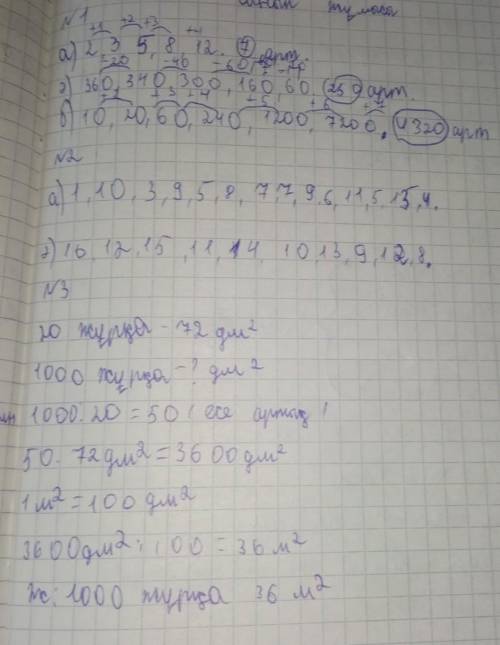 №1
+1 +2 +3 +4
а) 2, 3, 5, 8, 12. 7 арт.
-20 -40 -60
ә) 360, 340, 300, 160, 60, арт
б) 10, 20, 60, 240, 1200, 7200. 4320 арт
№2
а) 1, 10, 3, 9, 5, 8, 7, 7, 9, 6, 11, 5, 13, 4.
ә) 16, 12, 15, 11, 14, 10, 13, 9, 12, 8.
№3
20 жұрқа - 72 дм²
1000 жұрқа - ? дм²
1000 : 20 = 50 ( есе артық )
50 · 72 дм² = 3600 дм²
1 м² = 100 дм²
3600 дм² : 100 = 36 м²
Ж: 1000 жұрқа 36 м²